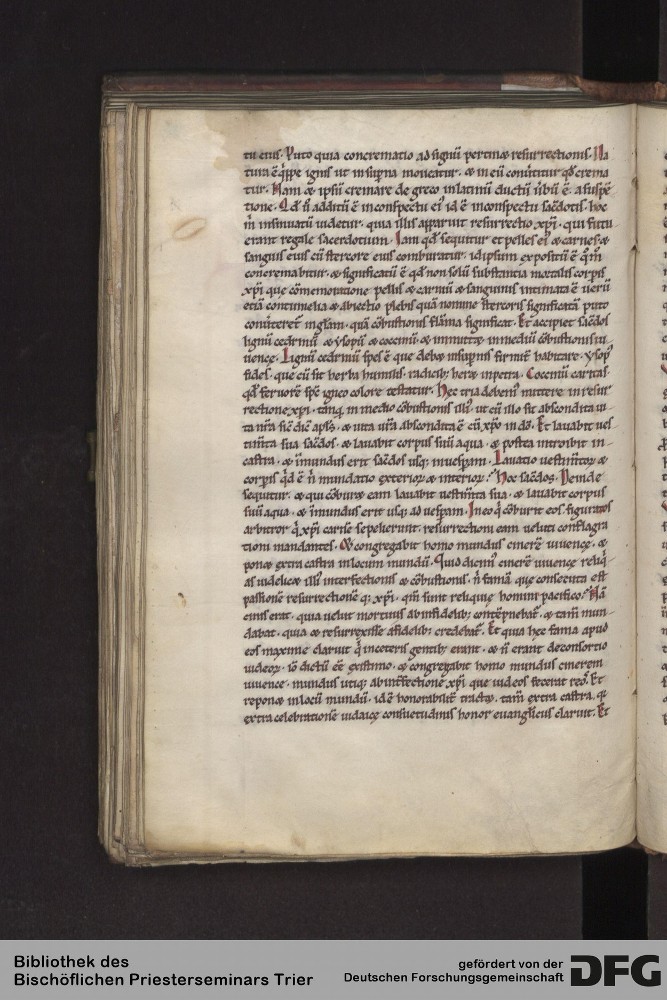 tu eius. Puto quia concrematio ad signū pertinꝫ resurrectionis. Na
tura ē q̇ppe ignis ut in suꝑna moueatur. ⁊ in eū conūtitur qđ crema
tur. Nam ⁊ ipsū cremare de greco in latinū ductū ūbū ē. a suspē
tione. Qđ ū additū ē in conspectu eiꝰ id ē in conspectu sac̄dotis. hoc
m̄ insinuatū uidetur. quia illis apparuit resurrectio xp̄i. qui futu
erant regale sacerdotium. Iam qđ sequitur et pelles eiꝰ ⁊ carnes ⁊
sanguis eius cū stercore eius comburatur. id ipsum expositū ē q̊m̄
concremabitur. ⁊ significatū ē qđ non solū substantia mortalis corꝑis
xp̄i que cōmemoratione pellis ⁊ carniū ⁊ sanguinis intimata ē uerū
etiā contumelia ⁊ abiectio plebis quā nomine stercoris significatā puto
conūteret̄ in gl̄am. quā cōbustionis flāma significat. Et accipiet sac̄dos
lignū cedrinū ⁊ ysopū ⁊ coccinū ⁊ inmittꝫ in mediū cōbustionis iu
uencę. Lignū cedrinū spes ē que debꝫ in suꝑnis firmit̄ habitare. ysopꝰ
fides. que cū sit herba humilis. radicibꝫ herꝫ in petra. Coccinū caritas.
qđ feruorē sp̄c igneo colore testatur. Hec tria debemꝰ mittere in resur
rectionē xp̄i. tanq̄. in medio cōbustionis illiꝰ. ut cū illo sit abscondita ui
ta nr̄a sic̄ dic̄ apl̄s. ⁊ uita ur̄a abscondita ē cū xp̄o in dō. Et lauabit ues
tim̄ta sua sac̄dos. ⁊ lauabit corpus suū aqua. ⁊ postea introibit in
castra. ⁊ īmundus erit sac̄dos usqꝫ in uesꝑam. Lauatio uestim̄toꝝ ⁊
corꝑis q̇d ē n̄ mundatio exterioꝝ ⁊ interioꝝ. Hoc sac̄dos. Deinde
sequitur. ⁊ qui cōburꝫ eam lauabit uestim̄ta sua. ⁊ lauabit corpus
suū aqua. ⁊ īmundus erit usqꝫ ad uesꝑam. In eo q̇ cōburit eos figuratos
arbitror q̇ xp̄i carnē sepelierunt. resurrectioni eam ueluti conflagra
tioni mandantes. Et congregabit homo mundus cinerē uiuencę. ⁊
ponꝫ extra castra in locum mundū. Quid dicimꝰ cinerē uiuencę reliq̇
as uidelicꝫ illiꝰ interfectionis ⁊ cōbustionis. n̄ famā. que consecuta est
passionē resurrectionēqꝫ xp̄i. qm̄ sunt reliquię homini pacifico. Nā
cinis erat. quia uelut mortuus ab infidelibꝫ contēpnebat̄. ⁊ tam̄ mun
dabat. quia ⁊ resurrexisse a fidelibꝫ credebat̄. Et quia hęc fama apud
eos maxime claruit q̇ in ceteris gentibꝫ erant. ⁊ n̄ erant de consortio
iudeoꝝ. iō dictū eē existimo. ⁊ congregabit homo mundus cinerem
uiuencę. mundus utiqꝫ ab int̄fectione xp̄i. que iudeos fecerat reoˢ. Et
reponꝫ in locū mundū. id ē honorabilit̄ tractꝫ. tam̄ extra castra. q̇
extra celebrationē iudaicę consuetudinis honor euanglicus claruit. Et
Bibliothek des
Bischöflichen Priesterseminars Trier
gefördert von der
Deutschen Forschungsgemeinschaft
DFG